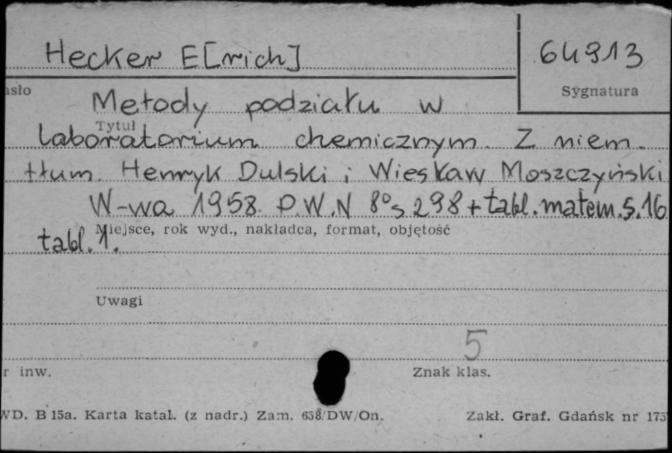 Hecker E[rich]
64913
asło
Sygnatura
Metody podziału w
Tytuł
laboratorium chemicznym. Z niem.
tłum. Henryk Dulski i Wiesław Moszczyński
W-wa 1958. P.W.N 8° s 298 + tabl. matem. s. 16
tabl. 1.
Miejsce, rok wyd., nakładca, format, objętość
Uwagi
5
r inw.
Znak klas.
WD. B 15a. Karta katal. (z nadr.) Zam. 638/DW/On.
Zakł. Graf. Gdańsk nr 173